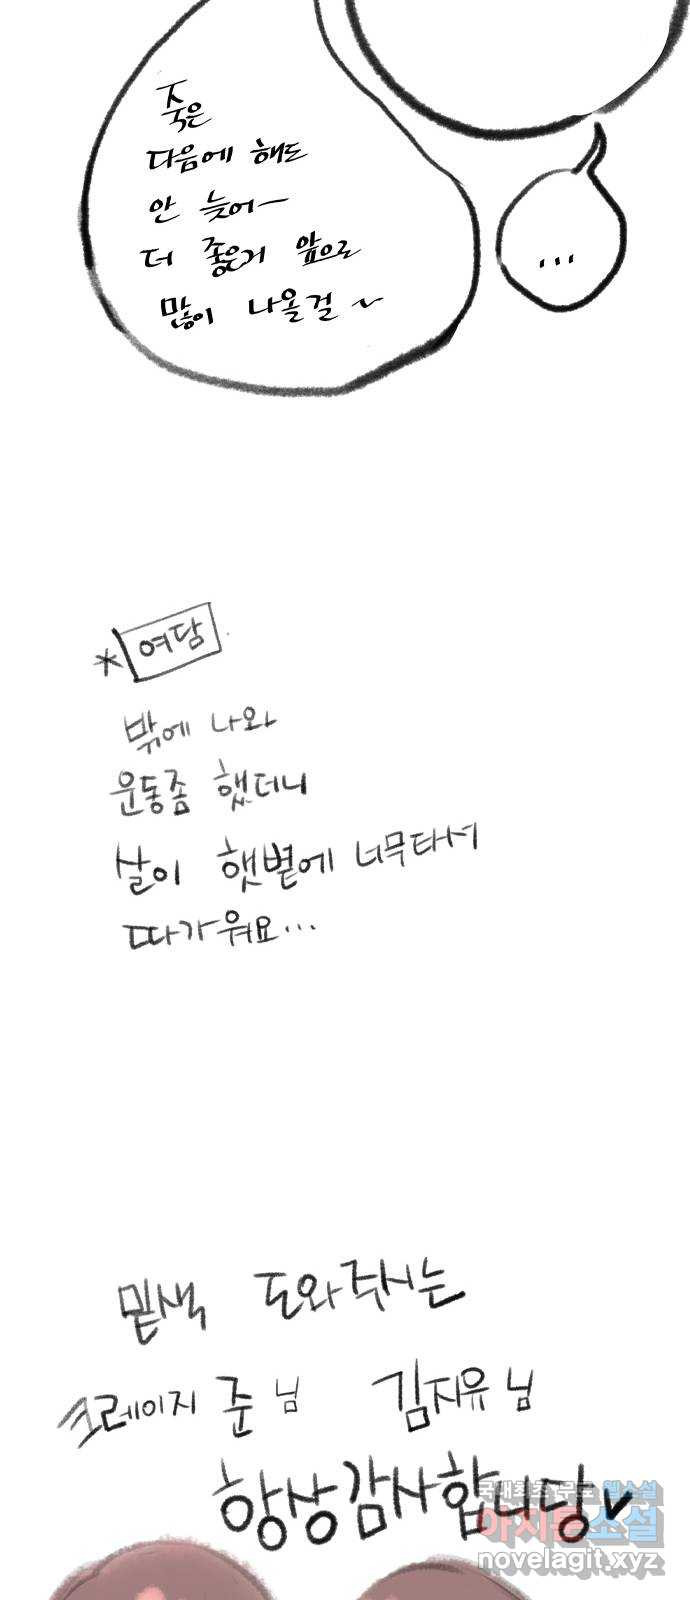 죽은
다음에 해도
안 늦어~
더 좋은거 앞으로
많이 나올걸~
...
*여담
밖에 나와
운동좀 했더니
살이 햇볕에 너무타서
따가워요...
밑색 도와주시는
크레이지 준님 김지유님
항상감사합니당♥
국내최초 무료 웹소설
아지툰소설
novelagit.xyz